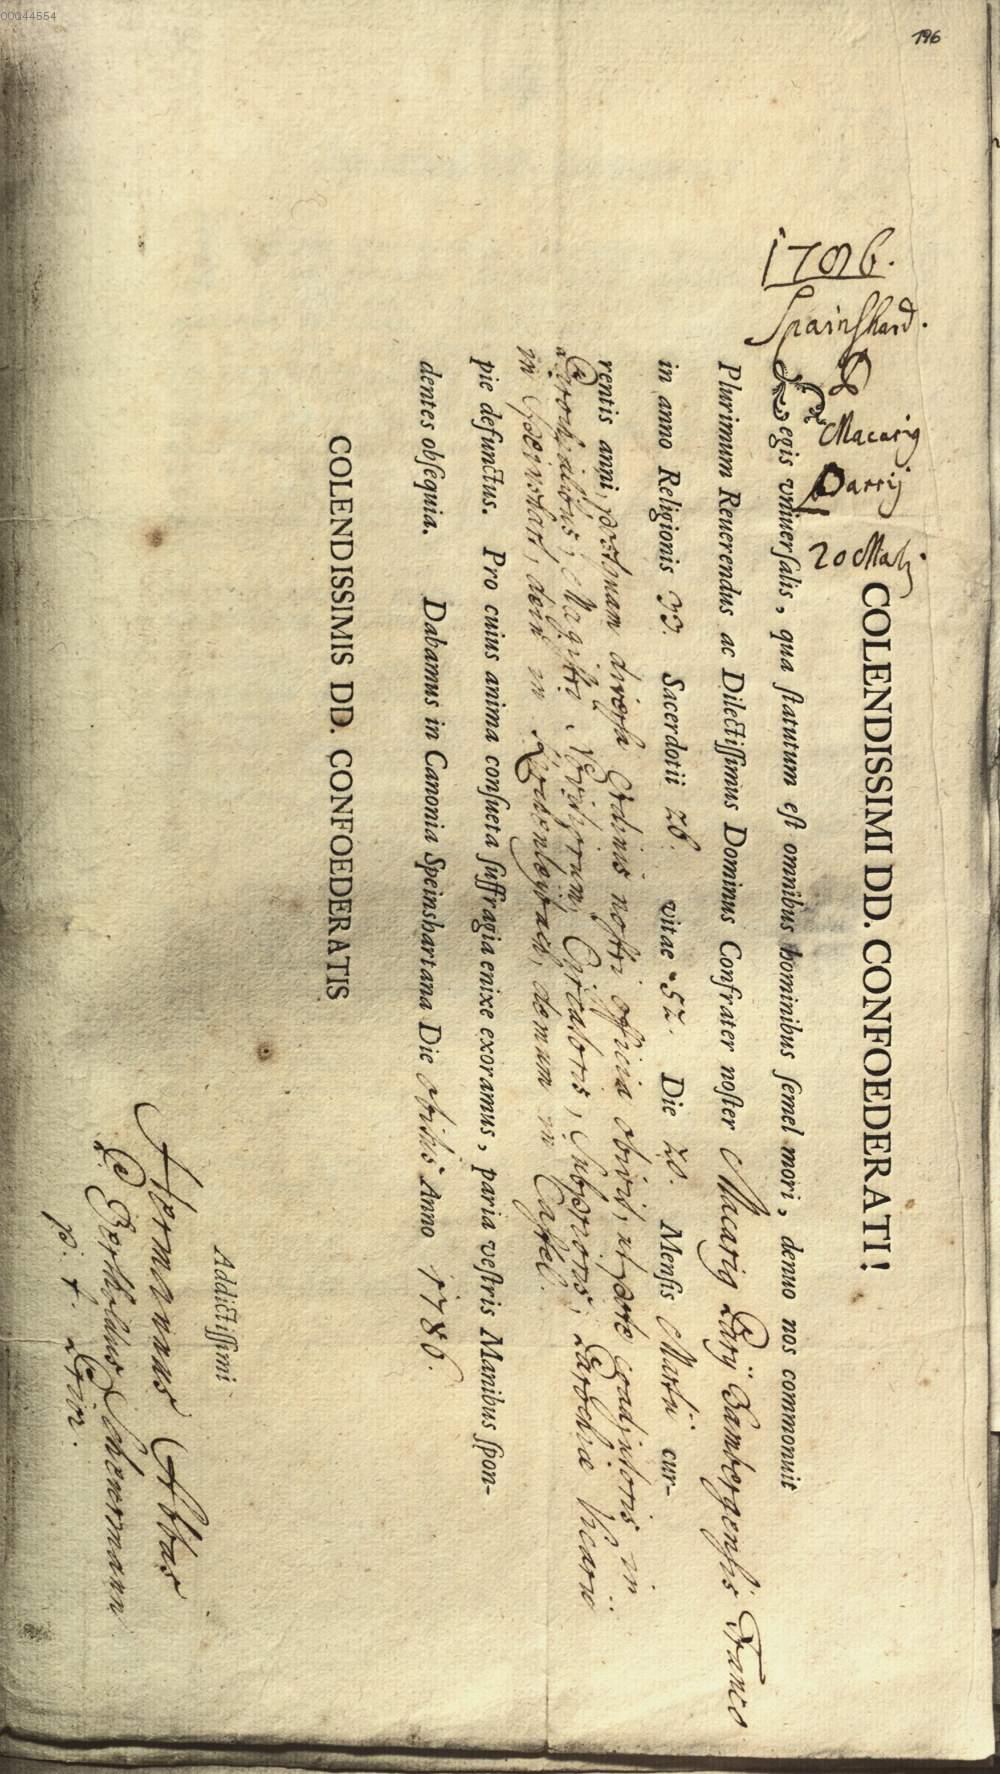 00044554
196
1786.
Speinshard.
P
Macarig
Parrij
20 Martij
COLENDISSIMI DD. CONFOEDERATI!
Legis vniuersalis, qua statutum est omnibus hominibus semel mori, denuo nos commonuit
Plurimum Reuerendus ac Dilectissimus Dominus Confrater noster Macarig Parij Bambergensis Franco
in anno Religionis 33. Sacerdotii 26. vitae 52. Die 20. Mensis Martii cur-
rentis anni, postquam diversa Ordinis nostri officia obivit, ut pote Coadjutoris in
Parochialibus, Magistri Novitiorum, Circatoris, Subprioris, Parochiae Vicarii
in Speinshart, dein in demum in Cappel.
pie defunctus. Pro cuius anima consueta suffragia enixe exoramus, paria vestris Manibus spon-
dentes obsequia. Dabamus in Canonia Speinshartana Die obitus Anno 1786.
COLENDISSIMIS DD. CONFOEDERATIS
Addictissimi
Hermannus Abbas
P. Bertholdus Scheuermann
p. t. Prior.